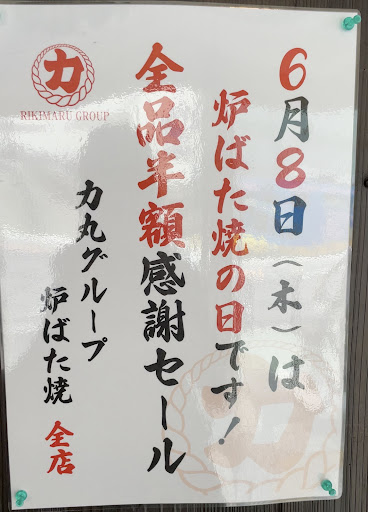 6月8日（木）は
炉ばた焼の日です！
全品半額感謝セール
力丸グループ
炉ばた焼 全店
力
RIKIMARU GROUP
力